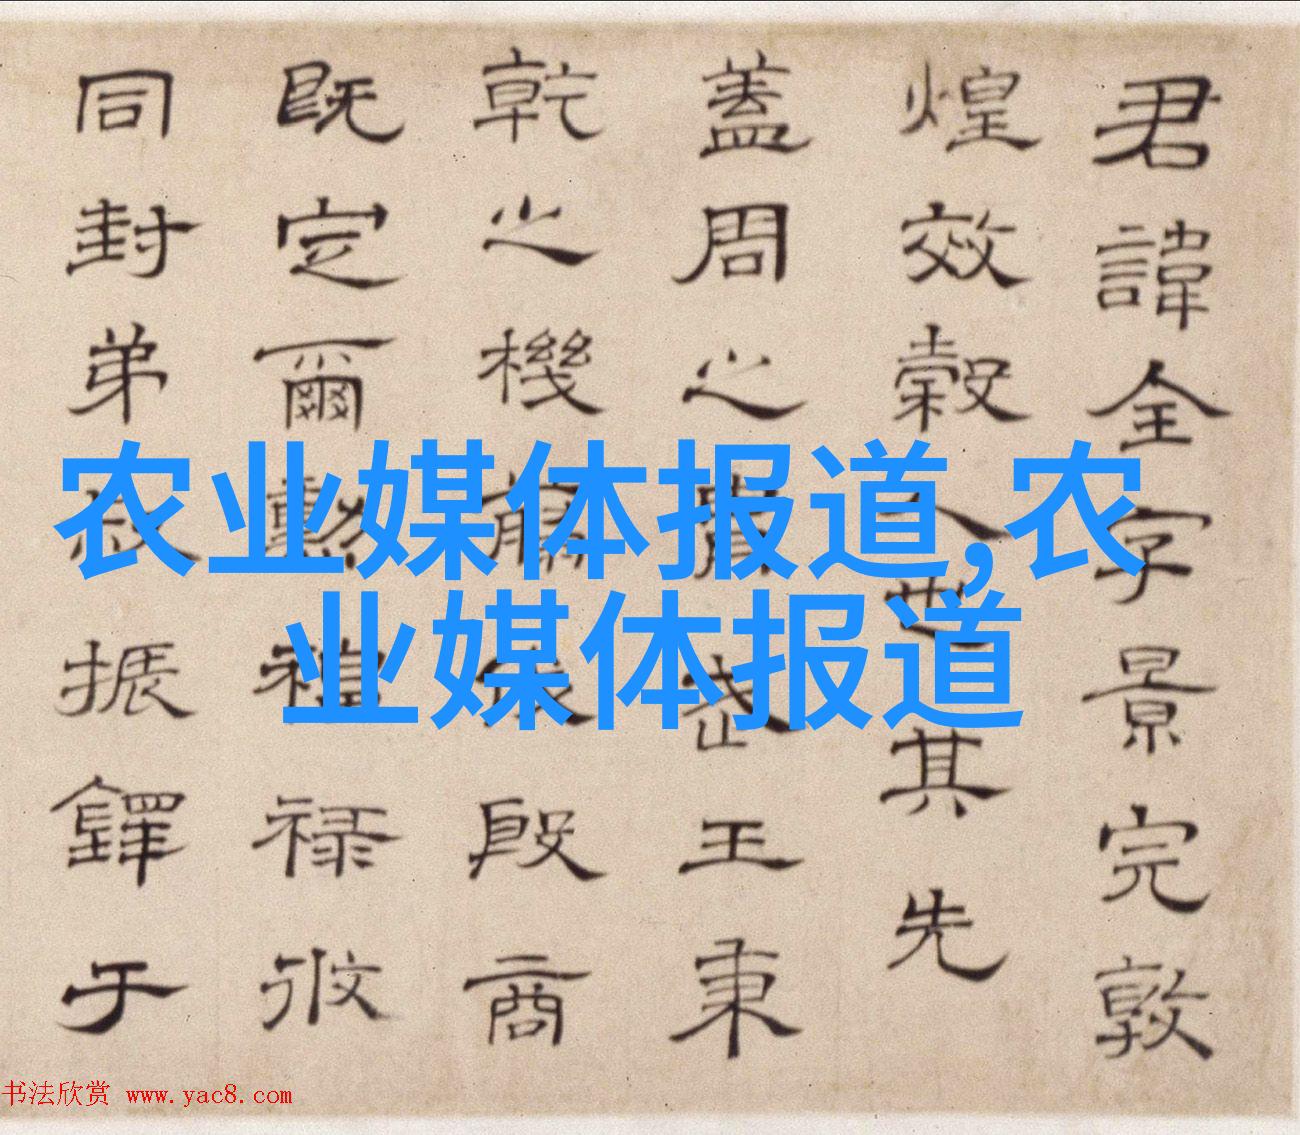 君諱全字景完敦
煌效穀人也其先
蓋周之胄武王秉
乾之機翦伐殷商
既定爾勳福祿攸
同封弟叔振鐸于
农业媒体报道,农
业媒体报道
书法欣赏 www.yac8.com